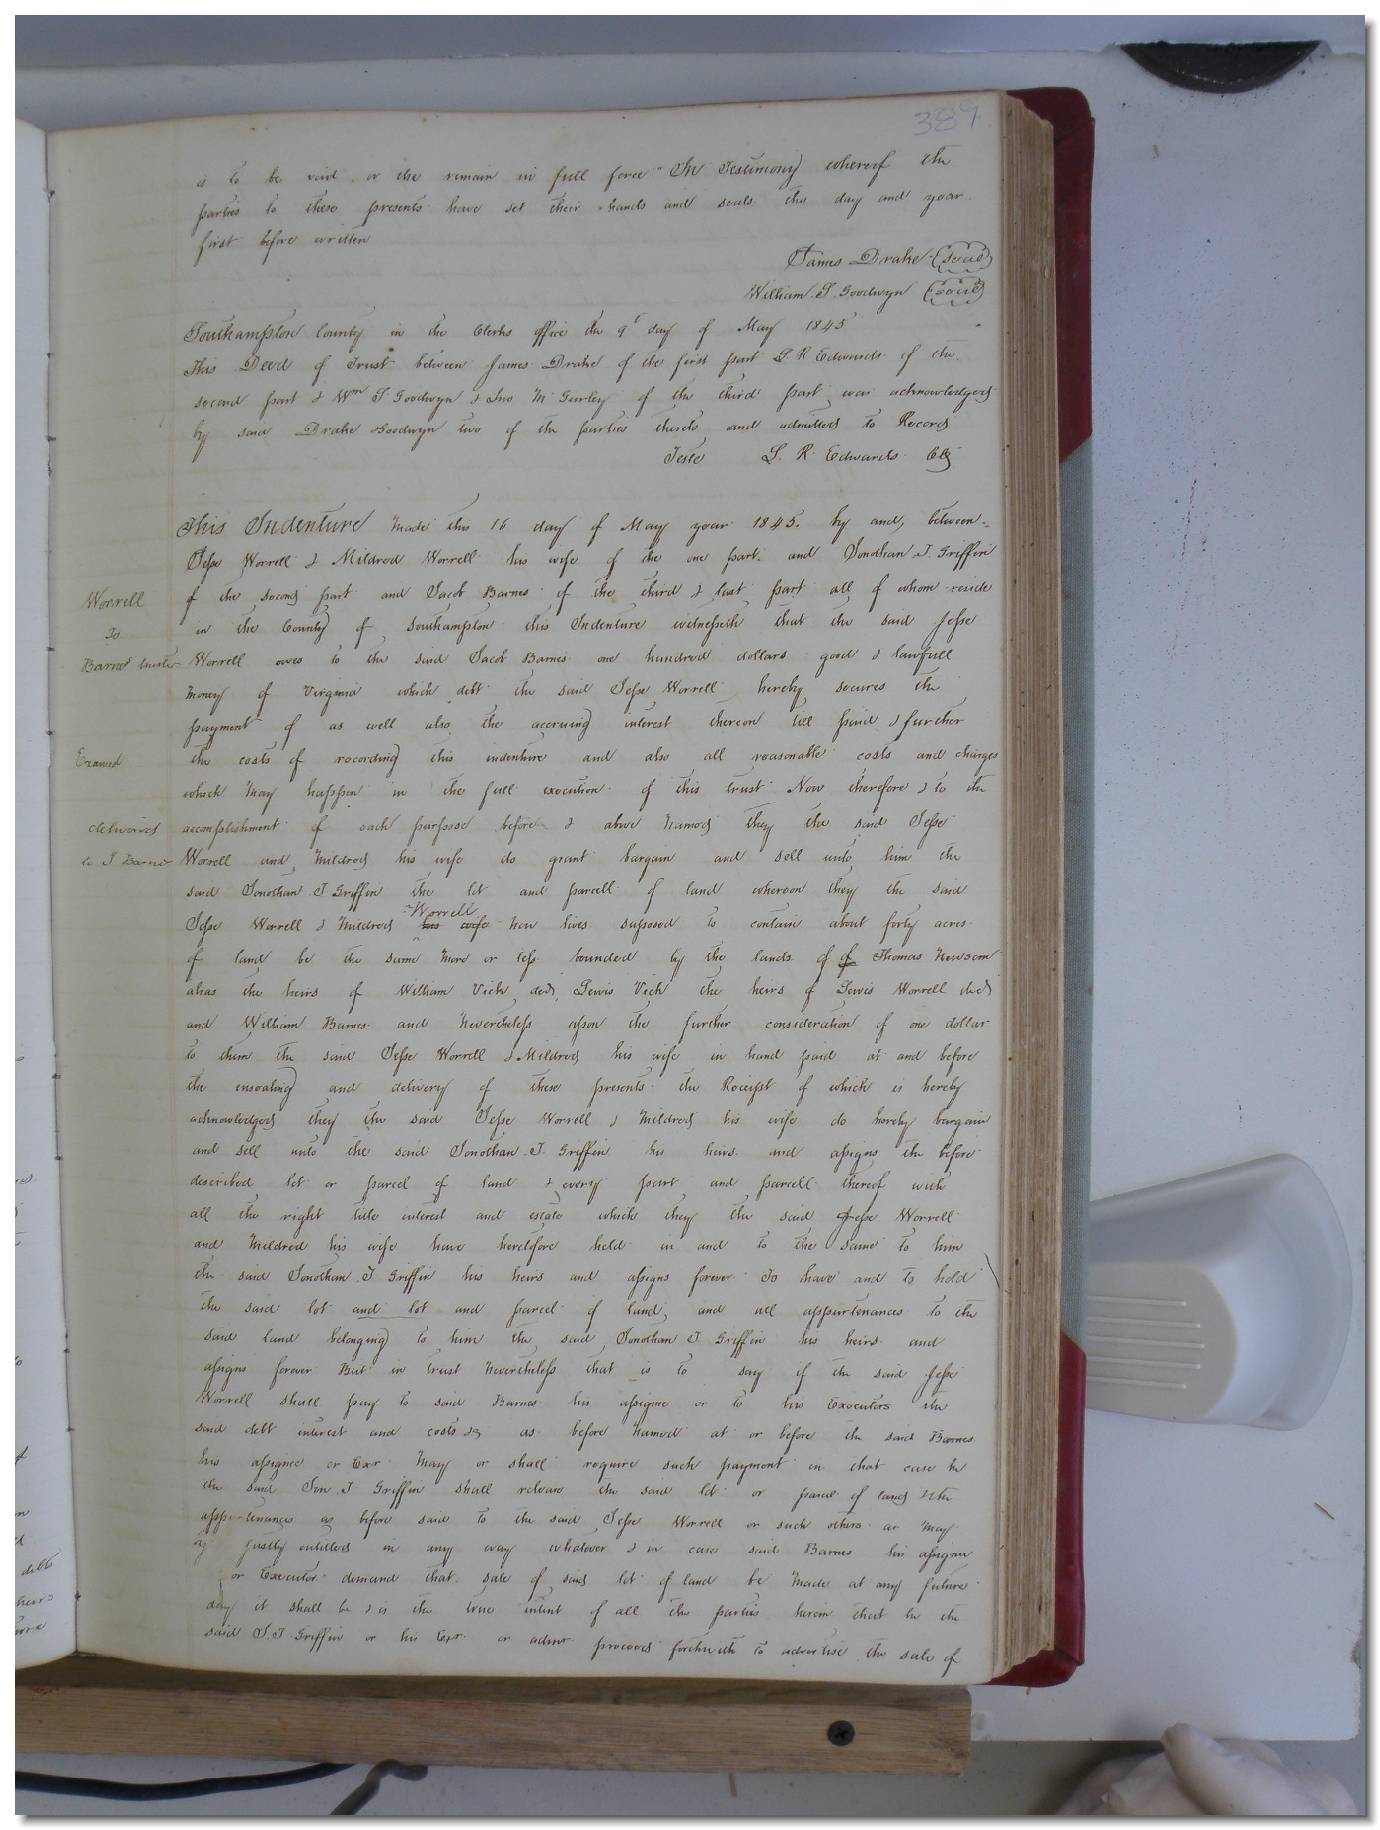 389
is to be void or else remain in full force " In Testimony whereof the
parties to these presents have set their hands and seals the day and year
first before written
James Drake (seal)
William S. Goodwyn (seal)
Southampton County in the Clerks office the 9th day of May 1845
This Deed of Trust between James Drake of the first part L R Edwards of the
second part & Wm S Goodwyn & Jno M Gurley of the third part was acknowledged
by said Drake Goodwyn two of the parties thereto and admitted to Record
Teste L. R. Edwards Clk
This Indenture Made this 16 day of May year 1845. by and, between
Jesse Worrell & Mildred Worrell his wife of the one part. and Jonathan J. Griffin
Worrell
To
Barnes trustee
of the second part and Jacob Barnes of the third & last part all of whom reside
in the County of Southampton this Indenture witnesseth that the said Jesse
Worrell owes to the said Jacob Barnes one hundred dollars good & lawfull
money of Virginia which debt the said Jesse Worrell hereby secures the
payment of as well also the accruing interest thereon till paid & further
Examd
the costs of recording this indenture and also all reasonable costs and charges
which May happen in the full execution of this trust Now therefore & to the
delivered
to J Barnes
accomplishment of each purpose before & above Named they the said Jesse
Worrell and Mildred his wife do grant bargain and sell unto him the
said Jonathan J Griffin the lot and parcell of land whereon they the said
Jesse Worrell & Mildred his wife Worrell now lives supposed to contain about forty acres
of land be the same More or less bounded by the lands of of Thomas Newsom
alias the heirs of William Vick decd, Lewis Vick the heirs of Lewis Worrell decd
and William Barnes and Nevertheless upon the further consideration of one dollar
to them the said Jesse Worrell & Mildred his wife in hand paid at and before
the ensealing and delivery of these presents the Receipt of which is hereby
acknowledged they the said Jesse Worrell & Mildred his wife do hereby bargain
and sell unto the said Jonathan J. Griffin his heirs and assigns the before
described lot or parcel of land & every part and parcell thereof with
all the right title interest and estate which they the said Jesse Worrell
and Mildred his wife have heretofore held in and to the same to him
the said Jonathan J Griffin his heirs and assigns forever To have and to hold
the said lot and lot and parcel of land, and all appurtenances to the
said land belonging to him the said Jonathan J Griffin his heirs and
assigns forever But in trust Nevertheless that is to say if the said Jesse
Worrell shall pay to said Barnes his assignee or to his Executors the
said debt interest and costs &c as before Named at or before the said Barnes
his assignee or Exr May or shall require such payment in that case he
the said Jon J Griffin shall release the said lot or parcel of land & the
appurtenances as before said to the said Jesse Worrell or such others as may
justly entitled in any way whatever & in case said Barnes his assignee
or Executor demand that sale of said lot of land be Made at any future
day it shall be & is the true intent of all the parties herein that he the
said J. J. Griffin or his Exr or admr proceed forthwith to advertise the sale of